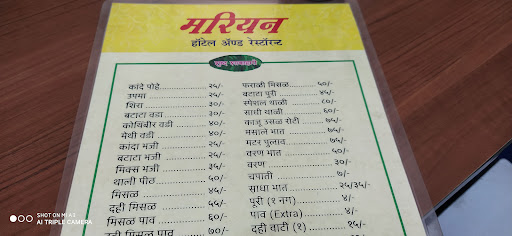 मरियन
हॉटेल ॲण्ड रेस्टॉरन्ट
शुद्ध शाकाहारी
कांदे पोहे ............ २५/-
उपमा ............ २५/-
शिरा ............ २५/-
बटाटा वडा ............ ३०/-
कोथिंबीर वडी ............ ४०/-
मेथी वडी ............ ४०/-
कांदा भजी ............ ३५/-
बटाटा भजी ............ २५/-
मिक्स भजी ............ ३५/-
थाली पीठ ............ ५०/-
मिसळ ............ ४५/-
दही मिसळ ............ ५५/-
मिसळ पाव ............ ६०/-
दही मिसळ पाव ............ ७०/-
फराळी मिसळ ............ ५०/-
बटाटा पूरी ............ ४५/-
स्पेशल थाळी ............ ८०/-
साधी थाळी ............ ६०/-
काजू उसळ रोटी ............ ७५/-
मसाले भात ............ ७५/-
मटर पुलाव ............ ७५/-
वरण भात ............ ५०/-
वरण ............ ३०/-
चपाती ............ ७/-
साधा भात ............ २५/३५/-
पूरी (१ नग) ............ ४/-
पाव (Extra) ............ ४/-
दही वाटी (१) ............ १५/-
SHOT ON MI A3
AI TRIPLE CAMERA